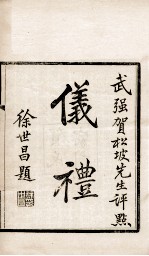 武强賀松坡先生评點
儀禮
徐世昌題